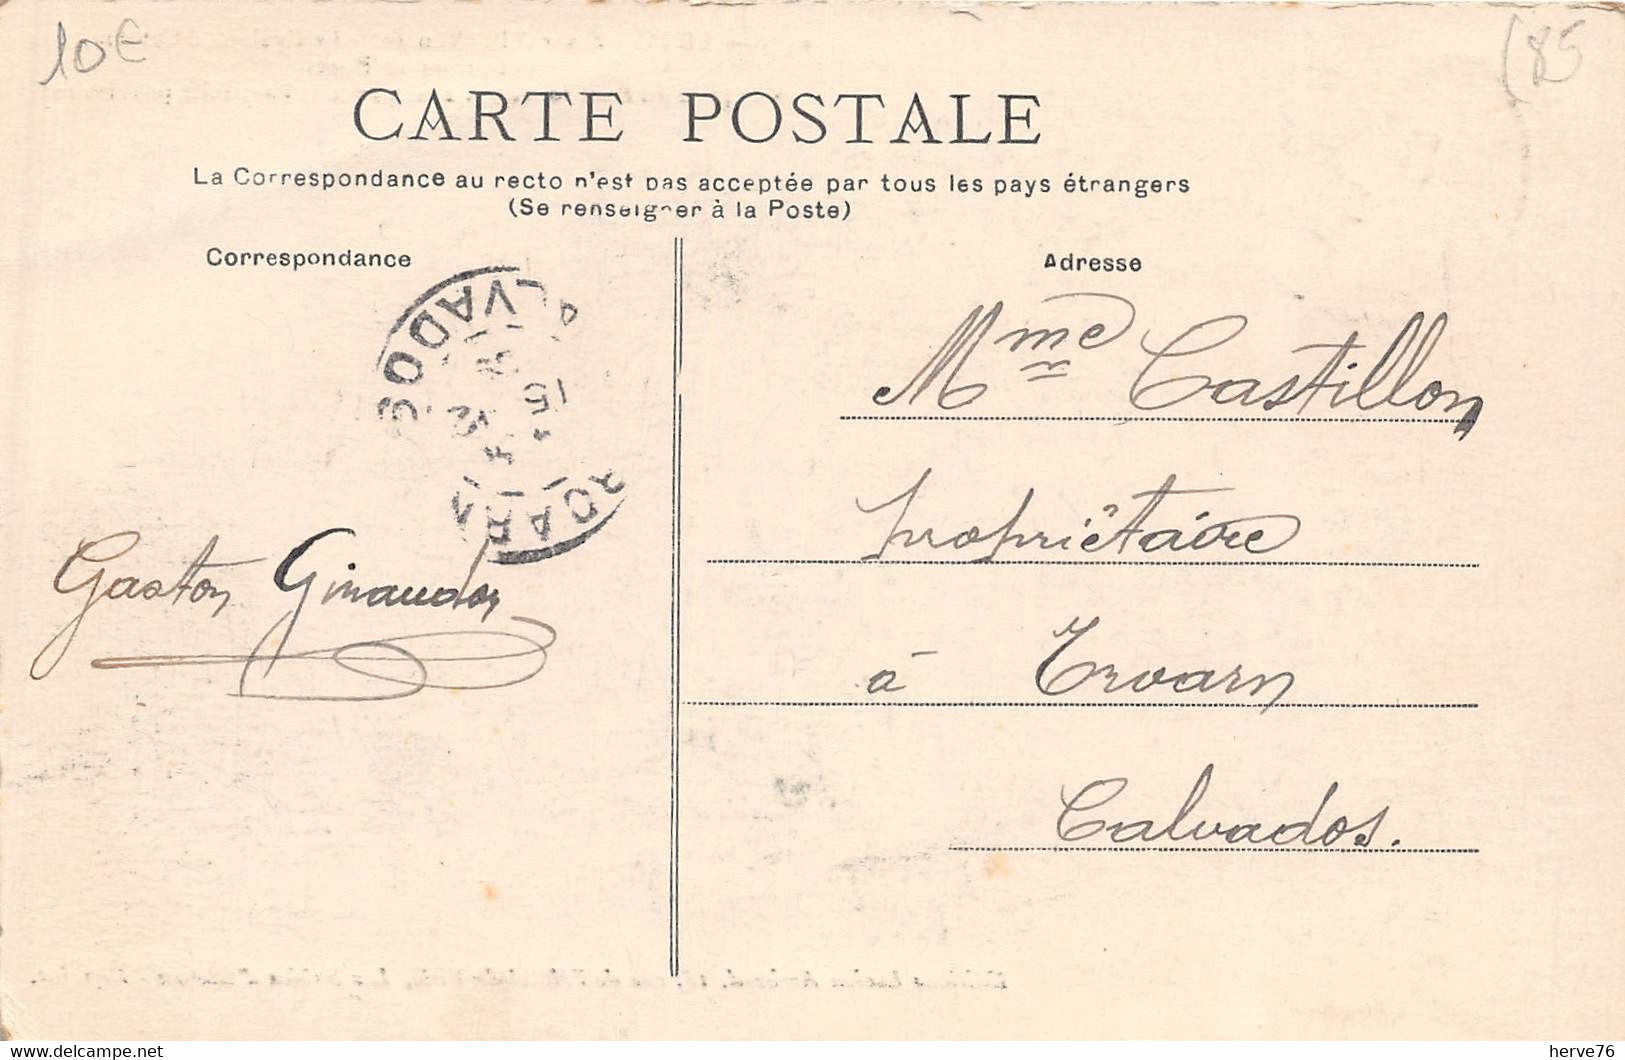 10€
(85
CARTE POSTALE
La Correspondance au recto n'est pas acceptée par tous les pays étrangers
(Se renseigner à la Poste)
Correspondance
Adresse
CALVADOS
15
Mme Castillon
propriétaire
à Troarn
Calvados.
Gaston Giraudon
herve76